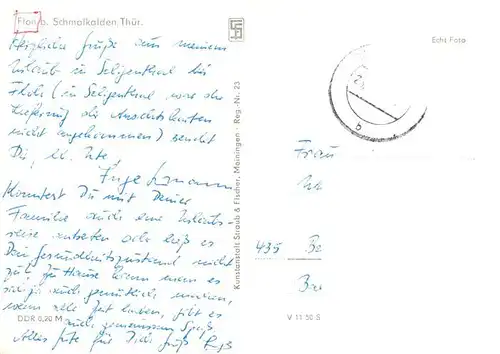 Floh b. Schmalkalden Thür.
Herzliche Grüße aus meinem
Urlaub in Seligenthal bei
Floh (in Seligenthal war die
Lieferung der Ansichtskarten
nicht angekommen) sendet
Dir, lb. Ute
Inge
Konntest Du mit Deiner
Familie auch eine Urlaubs-
reise antreten oder ließ es
Dein Gesundheitszustand nicht
zu? Zu Hause kann man es
sich ja auch gemütlich machen,
wenn alle Zeit haben, gibt es
auch gemeinsam Spaß
Alles Gute für Dich
DDR 0,20 M
Kunstanstalt Straub & Fischer, Meiningen · Reg.-Nr. 23
Echt Foto
Frau
435 Be
V 11 50 S